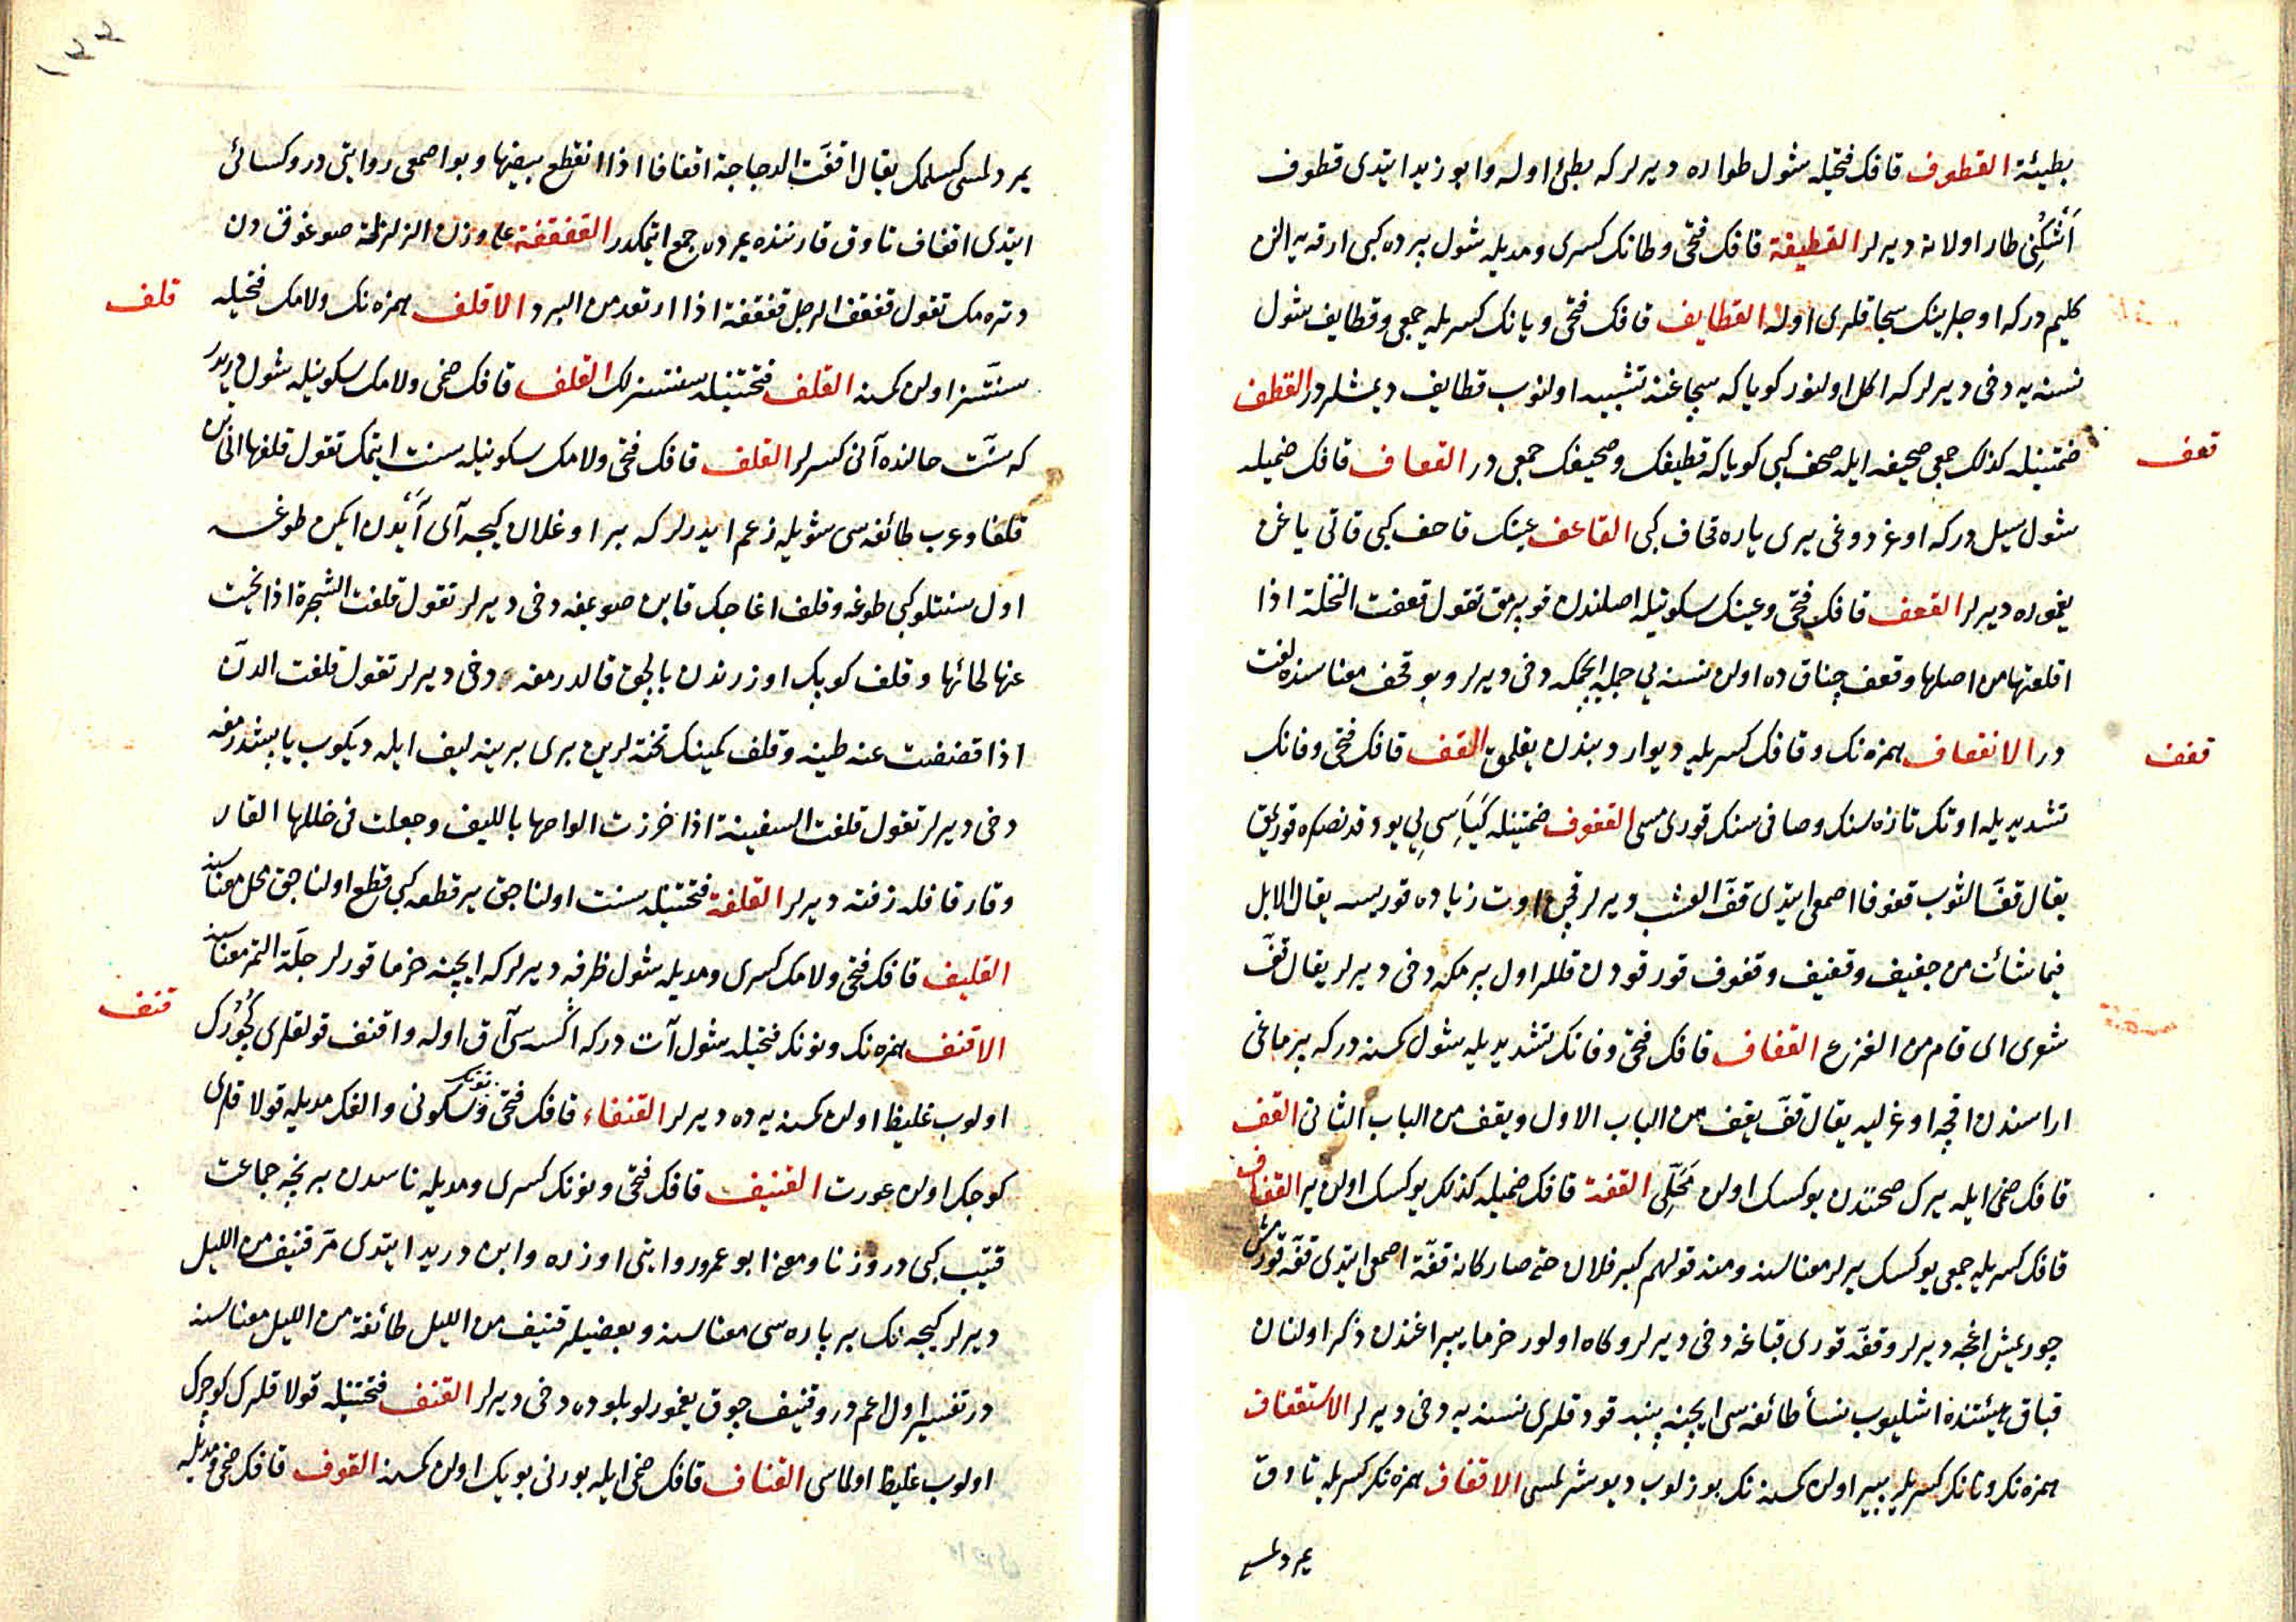 بطيئة القطوف قافك فتحيله شول طواره ديرلر كه بطئ اوله وابو زيد ايتدى قطوف
اَشكِنى طار اولانه ديرلر القطيفة قافك فتحى وطانك كسرى ومديله شول پرده كبى ارقه يه الن
كليم در كه اوجلرينك سجاقلرى اوله القطايف قافك فتحى ويانك كسريله جمعى وقطايف شول
نسنه يه دخى ديرلر كه اكل اولنور كويا كه سجاغنه تشبيه اولنوب قطايف ديمشلردر القطف
قعف
ضمتينله كذلك جمعى صحيفه ايله صحف كبى كويا كه قطيفك وصحيفك جمعى در القعاف قافك ضميله
شول سيل در كه اوغردوغى يرى ياره قحاف كبى القاعف عينك قاحف كبى قاتى ياغن
يغموره ديرلر القعف قافك فتحى وعينك سكونيله اصلندن قوپرمق تقول قعفت النخلة اذا
اقلعتها من اصلها وقعف چناق ده اولن نسنه يى جمله ايچمكه دخى ديرلر وبو قحف معناسنده لغت
قفف
در الانقعاف همزه نك وقافك كسريله ديوار ديبندن يقلمق القف قافك فتحى وفانك
تشديديله اوتك تازه لسنك وصافى سنك قورى مسى القفوف ضمتينله كياسى يى يودقدنصكره قوريمق
يقال قف الثوب قفوفا اصمعى ايتدى قف العشب ديرلر قچن اوت زياده قوريسه يقال الابل
فيما شائت من جفيف وقفيف وقفوف قورقودن قللر اول يرمكه دخى ديرلر يقال قف
شعرى اى قام من الفزع القفاف قافك فتحى وفانك تشديديله شول كمسنه در كه پرماغى
اراسندن اقچه اوغرليه يقال قف يقف من الباب الاول ويقف من الباب الثانى القف
قافك ضمى ايله يرك صحتندن يوكسك اولن مَحَلِّى القفة قافك ضميله كذلك يوكسك اولن ير القفاف
قافك كسريله جمعى يوكسك يرلر معناسنه ومنه قولهم كبر فلان حتى صار كانه قفة اصمعى ايتدى قفه قورمش
چوريمش اغجه ديرلر وقفه قورى قباغه دخى ديرلر وكاه اولور خرما يپراغندن ذكر اولنان
قباق هيئتنده اشليوب نسأ طائفه سى ايچنه پنبه قودقلرى نسنه يه دخى ديرلر الاستقفاف
همزه نك وتانك كسريله پير اولن كمسنه نك بوزلوب ديوشرلمسى الاقفاف همزه نك كسريله تاوق
يمردلمسى
١٢٢
يمردلمسى كسلمك يقال اقفت الدجاجة اقفافا اذا انقطع بيضها وبو اصمعى روايتى در وكسائى
ايتدى اقفاف تاوق قارننده يمرده جمع ايتمكدر القفقفة على وزن الزلزلة صوغوق دن
قلف
دتره مك تقول قفقف الرجل قفقفة اذا ارتعد من البرد الاقلف همزه نك ولامك فتحيله
سنتسز اولن كمسنه القلف فتحتينله سنتسزلك القلف قافك ضمى ولامك سكونيله شول دريدر
كه سنت حالنده آنى كسرلر القلف قافك فتحى ولامك سكونيله سنت ايتمك تقول قلفها الخاتن
قلفا وعرب طائفه سى شويله زعم ايدرلر كه بر اوغلان كيجه آى آيدن ايكن طوغسه
اول سنتلو كبى طوغه وقلف اغاجك قابن صويمغه دخى ديرلر تقول قلفت الشجرة اذا نحيت
عنها لحائها وقلف كوپك اوزرندن بالچق قالدرمغه دخى ديرلر تقول قلفت الدن
اذا قضفت عنه طينه وقلف كمينك تخته لرين برى برينه ليف ايله ديكوب ياپشدرمغه
دخى ديرلر تقول قلفت السفينة اذا خرزت الواحها بالليف وجعلت فى خللها القار
وقار قافله زفته ديرلر القلفة فتحتينله سنت اولناجق ير قطعه كبى قطع اولناجق محل معناسنه
القليف قافك فتحى ولامك كسرى ومديله شول ظرفه ديرلر كه ايچنه خرما قورلر جلة التمر معناسنه
قنف
الاقنف همزه نك ونونك فتحيله شول آت در كه اكسه سى آق اوله واقنف قولقلرى كُچورك
اولوب غليظ اولن كمسنه يه ده ديرلر القنفاء قافك فتحى ونونك سكونى والفك مديله قولاقلرى
كوچك اولن عورت القنيف قافك فتحى ونونك كسرى ومديله ناسدن بر نچه جماعت
قتيب كبى در وزنا ومعنا ابو عمرو روايتى اوزره وابن دريد ايتدى مر قنيف من الليل
ديرلر كيجه نك بر پاره سى معناسنه وبعضيلر قنيف من الليل طائفة من الليل معناسنه
در تفسير اول اعم در وقنيف چوق يغمورلو بلوده دخى ديرلر القنف فتحتينله قولاقلرك كوچرك
اولوب غليظ اولماسى القناف قافك ضمى ايله بورنى بويك اولن كمسنه القوف قافك ضمى ومديله